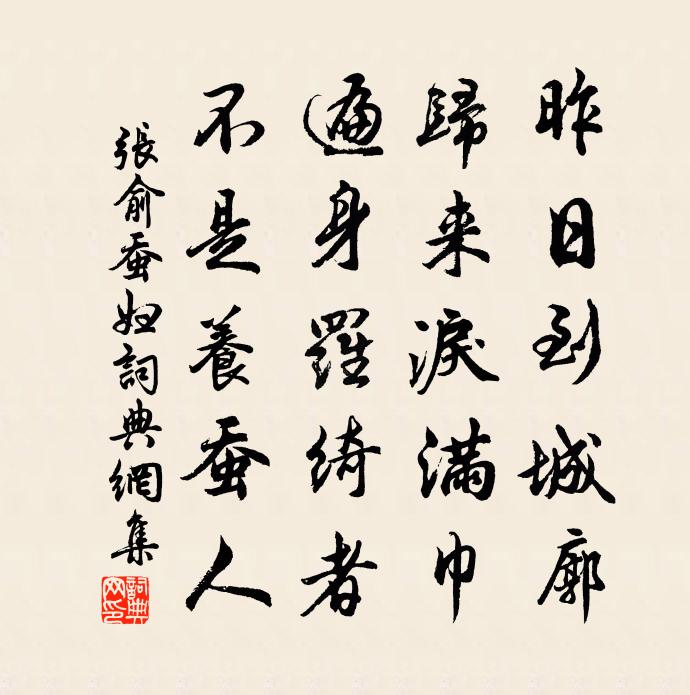 昨日到城廓
歸来淚滿巾
遍身羅綺者
不是養蚕人
張俞蚕妇詞典網集
詞典网印